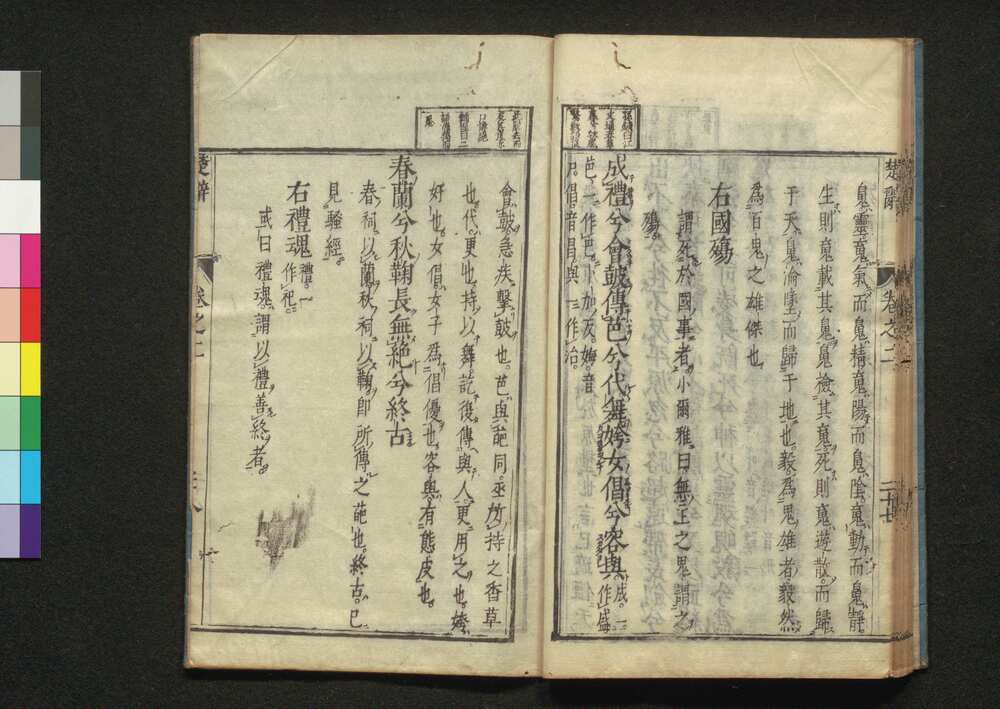 楚辭 卷之二 二十七
魄靈魂氣而魄精魂陽而魄陰魂動而魄靜
生則魂載其魄魄檢其魂死則魂遊散而歸
于天魄淪墜而歸于地也毅爲鬼雄者毅然
爲百鬼之雄傑也
右國殤
謂死於國事者小爾雅曰無主之鬼謂之
殤
成禮兮會鼓傳芭兮代舞姱女倡兮容與 成一作盛
芭一作巴卜加反姱音
戶倡音昌與一作治
會鼓急疾擊鼓也芭與葩同巫所持之香草
也代更也持以舞訖復傳與人更用之也姱
好也女倡女子爲倡優也容與有態度也
春蘭兮秋鞠長無絶兮終古
春祠以蘭秋祠以鞠即所傳之葩也終古已
見騷經
右禮魂 禮一作祀
或曰禮魂謂以禮善終者
楚辭 卷之二